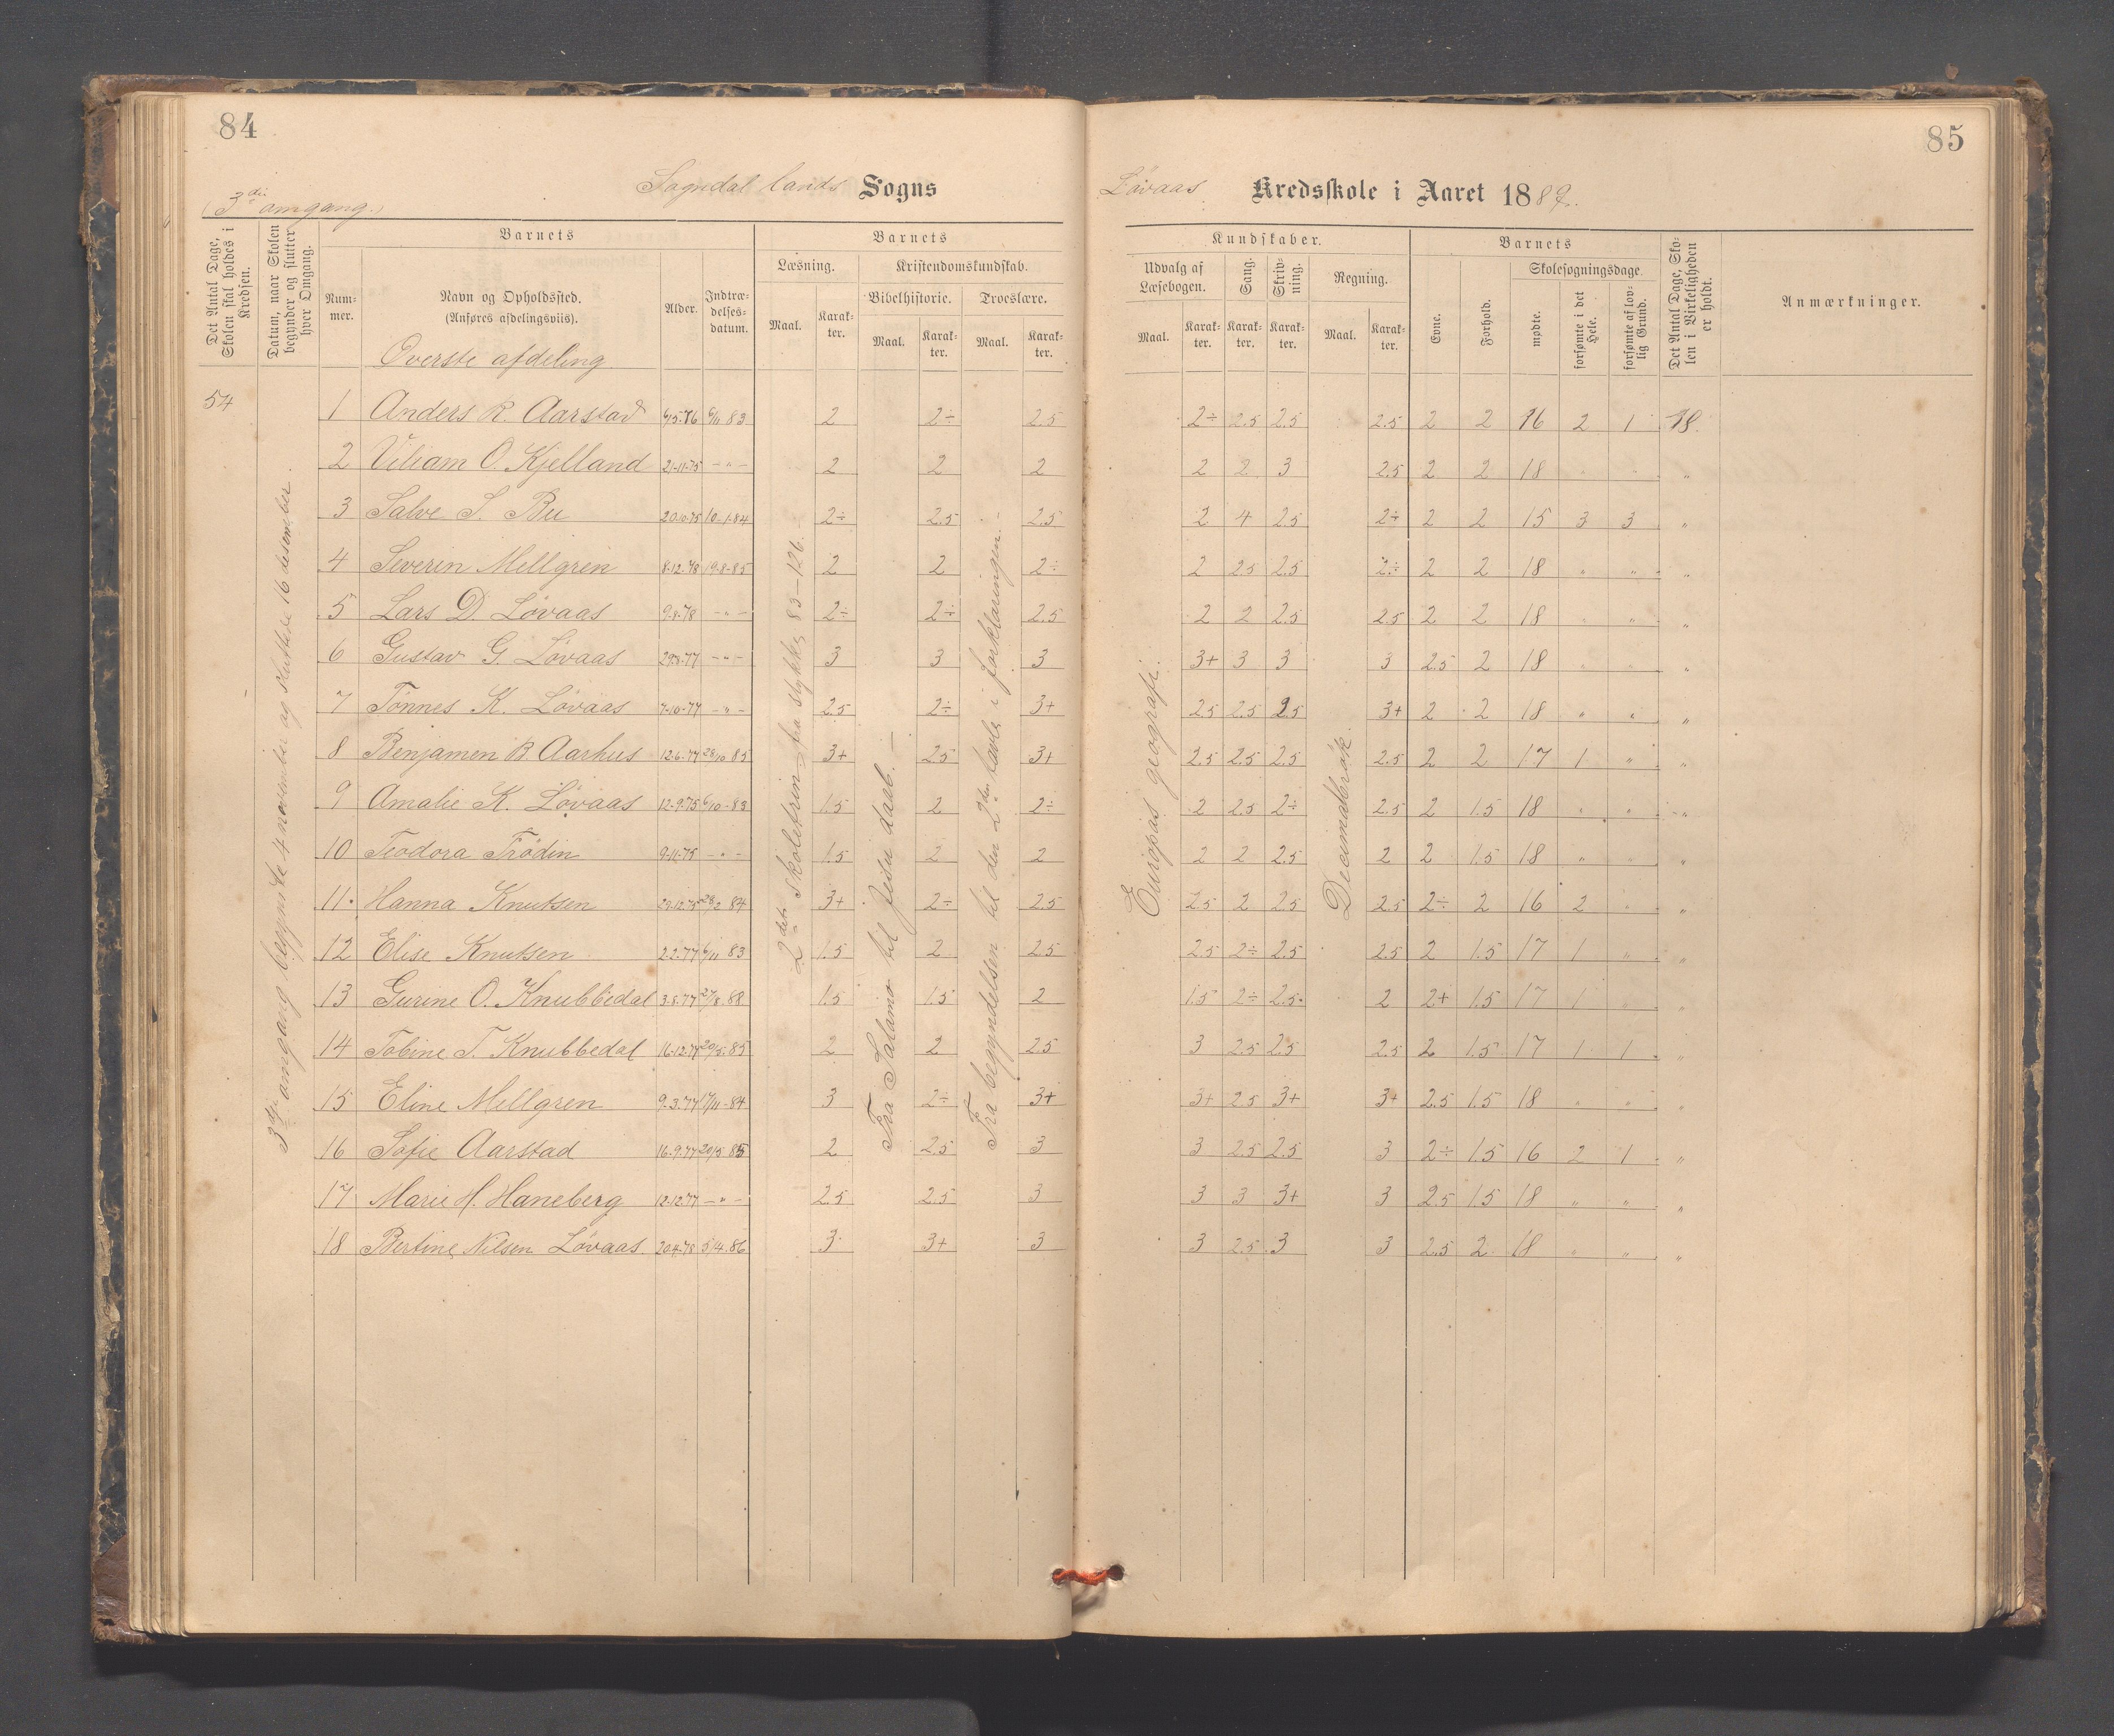 84
Sogndal lands Sogns
(3die omgang.)
Det Antal Dage, Skolen skal holdes i Kredsen.
Datum, naar Skolen begynder og slutter hver Omgang.
Barnets
Num-mer.
Navn og Opholdssted.
(Anføres afdelingsviis).
Alder.
Indtræ-delses-datum.
Barnets
Læsning.
Maal.
Karak-ter.
Kristendomskundskab.
Bibelhistorie.
Maal.
Karak-ter.
Troeslære.
Maal.
Karak-ter.
Overste afdeling
54
3die omgang begynte 4 november og sluttede 16 desember.
2det skoletrin fra stykke 83-126.
Fra Salamo til Jesu daab. —
Fra begyndelsen til den 2den tavle i forklaringen. –
1 Anders R. Aarstad 6/5.76 6/11 83 2 2÷ 2.5
2 Viliam O. Kjelland 21-11-75 –"– 2 2 2
3 Salve S. Bu 20.10.75 10-1-84 2÷ 2.5 2.5
4 Severin Mellgren 8.12.78 19-8-85 2 2 2÷
5 Lars D. Løvaas 9.8.78 –"– 2÷ 2÷ 2.5
6 Gustav G. Løvaas 29.8.77 –"– 3 3 3
7 Tønnes K. Løvaas 7-10-77 –"– 2.5 2÷ 3+
8 Benjamen B Aarhus 12.6.77 28/10 85 3+ 2.5 3+
9 Amalie K. Løvaas 12.9.75 6/10-83 1.5 2 2÷
10 Teodora Frødin 9-11-75 –"– 1.5 2 2
11. Hanna Knutsen 29.12.75 28/2 84 3+ 2÷ 2.5
12 Elise Knutsen 2.2.77 6/11 83 1.5 2 2.5
13 Gurine O. Knubbedal 3.8.77 27/8.88 1.5 1.5 2
14 Tobine T. Knubbedal 16.12.77 20/5.85 2 2 2.5
15 Eline Mellgren 9.3.77 17/11-84 3 2÷ 3+
16 Sofie Aarstad 16.9.77 20/5 85 2 2.5 3
17 Marie H. Haneberg 12.12.77 –"– 2.5 2.5 3
18 Bertine Nilsen Løvaas 20.4.78 5/4.86 3 3+ 3
85
Løvaas Kredsskole i Aaret 1889.
Kundskaber.
Udvalg af Læsebogen.
Maal.
Karak-ter.
Sang.
Karak-ter.
Skriv-ning.
Karak-ter.
Regning.
Maal.
Karak-ter.
Barnets
Evne.
Forhold.
Skolesøgningsdage.
mødte.
forsømte i det Hele.
forsømte af lov-lig Grund.
Det Antal Dage, Sko-len i Virkeligheden er holdt.
Anmærkninger.
Europas geografi.
Decimalbrøk.
2÷ 2.5 2.5 2.5 2 2 16 2 1 18.
2 2 3 2.5 2 2 18 " " "
2 4 2.5 2÷ 2 2 15 3 3 "
2 2.5 2.5 2÷ 2 2 18 " " "
2 2 2.5 2.5 2 2 18 " " "
3+ 3 3 3 2.5 2 18 " " "
2.5 2.5 2.5 3+ 2 2 18 " " "
2.5 2.5 2.5 2.5 2 2 17 1 " "
2 2.5 2÷ 2.5 2 1.5 18 " " "
2 2 2.5 2 2 1.5 18 " " "
2.5 2 2.5 2.5 2÷ 2 16 2 " "
2.5 2÷ 2.5 2.5 2 1.5 17 1 " "
1.5 2÷ 2.5. 2 2+ 1.5 17 1 " "
3 2.5 2.5 2.5 2 1.5 17 1 1 "
3+ 2.5 3+ 3+ 2.5 1.5 18 " " "
3 2.5 2.5 3 2÷ 1.5 16 2 1 "
3 3 3+ 3 2.5 1.5 18 " " "
3 2.5 3 3 2.5 2 18 " " "